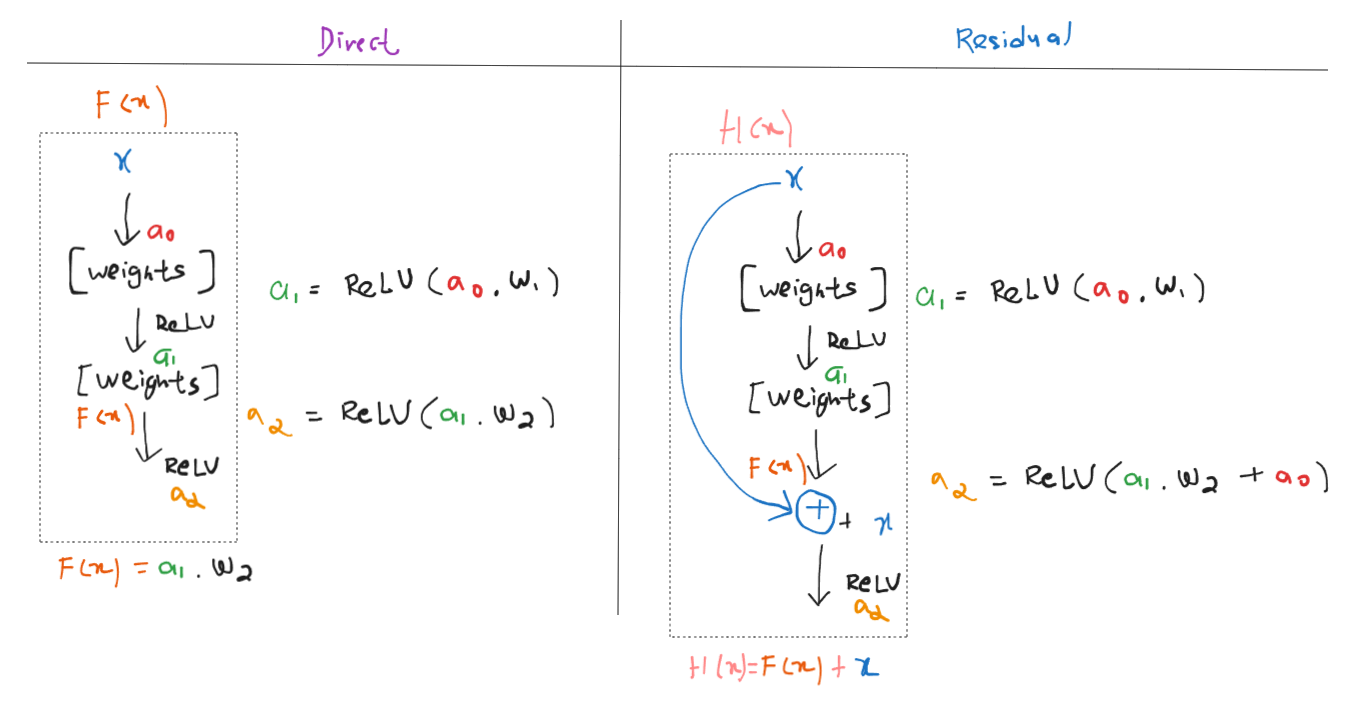 Direct
F(x)
x
a0
[weights]
a1 = ReLU(a0.w1)
ReLU
a1
[weights]
F(x)
a2 = ReLU(a1.w2)
ReLU
a2
F(x) = a1.w2
Residual
H(x)
x
a0
[weights]
a1 = ReLU(a0.w1)
ReLU
a1
[weights]
F(x)
a2 = ReLU(a1.w2 + a0)
+ + x
ReLU
a2
H(x)=F(x)+x